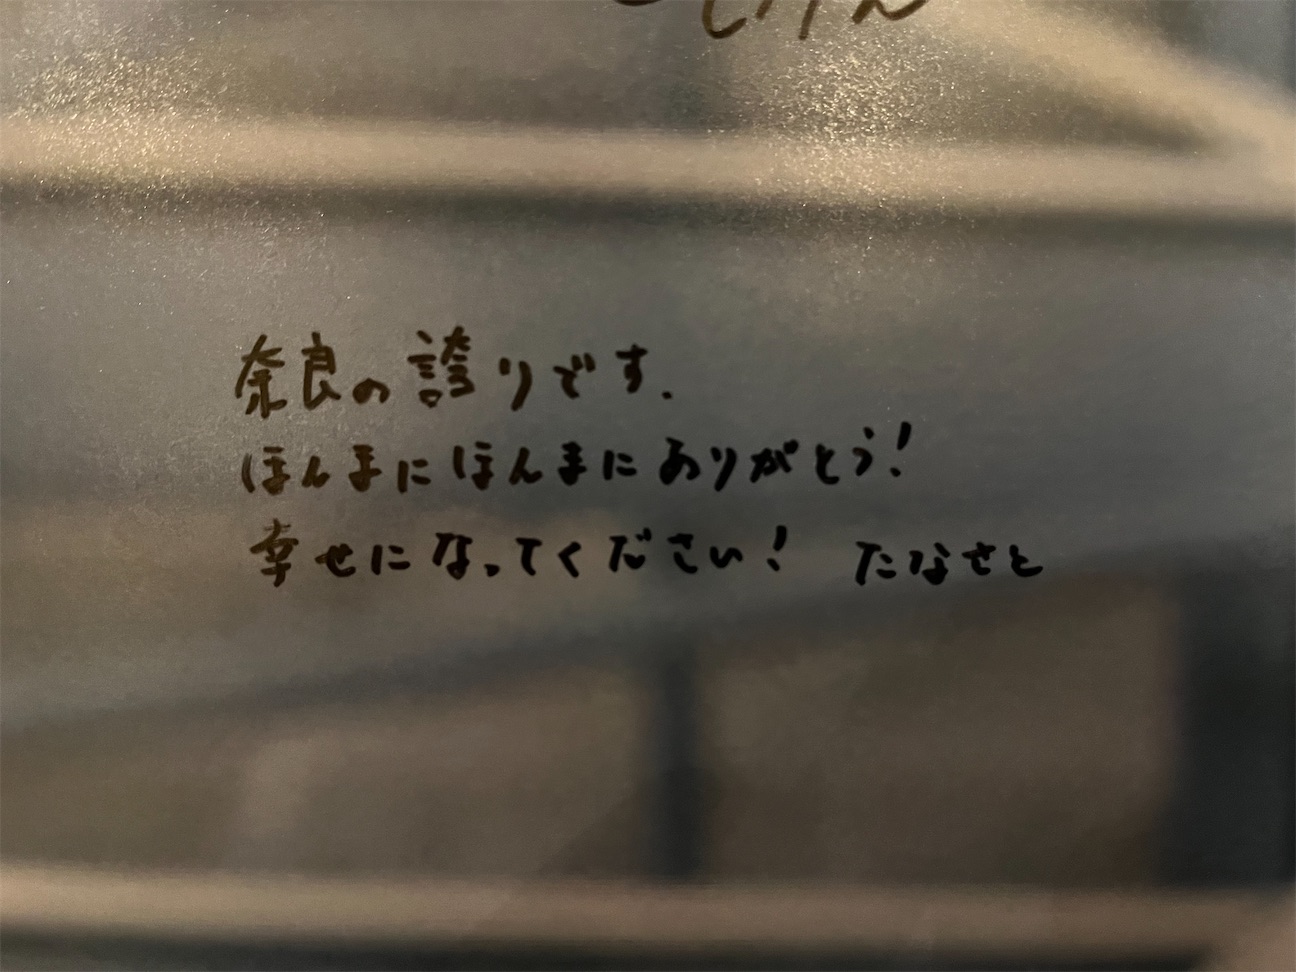 奈良の誇りです.
ほんまにほんまにありがとう!
幸せになってください! たなさと